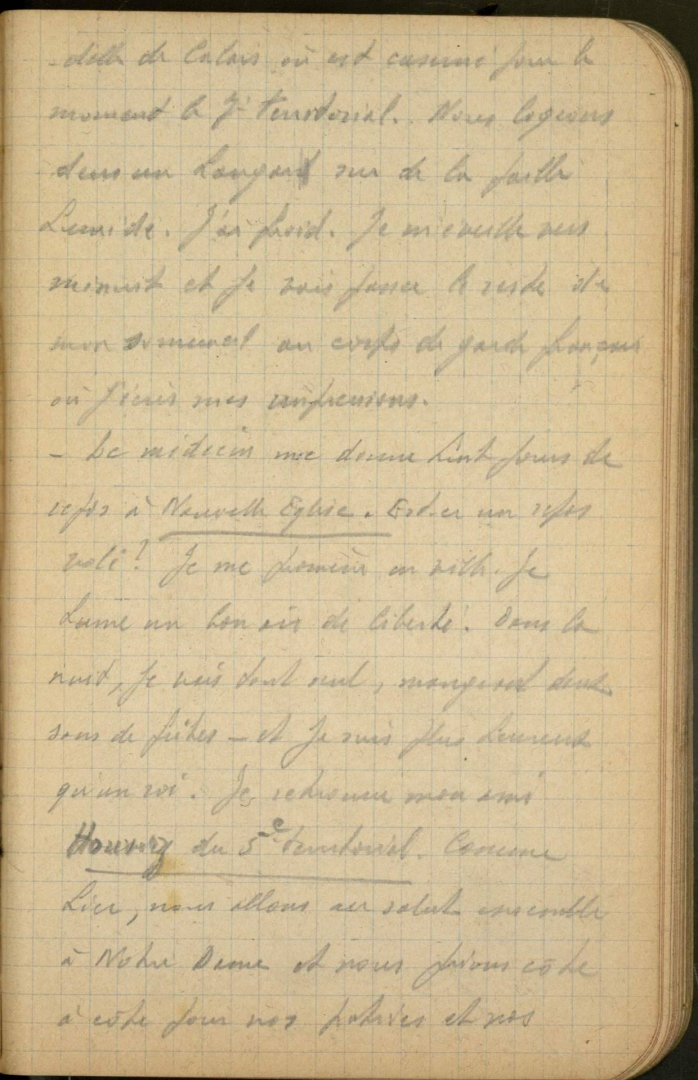 -delle de Calais où est caserné pour le
moment le 7e territorial. Nous logeons
dans un hangard sur de la paille
humide. J'ai froid. Je m'éveille vers
minuit et je vais passer le reste de
mon sommeil au corps de garde français
où j'écris mes impressions.
- Le médecin me donne huit jours de
repos à Nouvelle Eglise. Est-ce un repos
volé? Je me promène en ville. Je
hume un bon air de liberté. Dans la
nuit, je vais tout seul, mangeant deux
sous de frites - et je suis plus heureux
qu'un roi. Je retrouve mon ami
du 5e territorial. Comme
hier, nous allons au salut ensemble
à Notre Dame et nous prions côte
à côte pour nos patries et nos